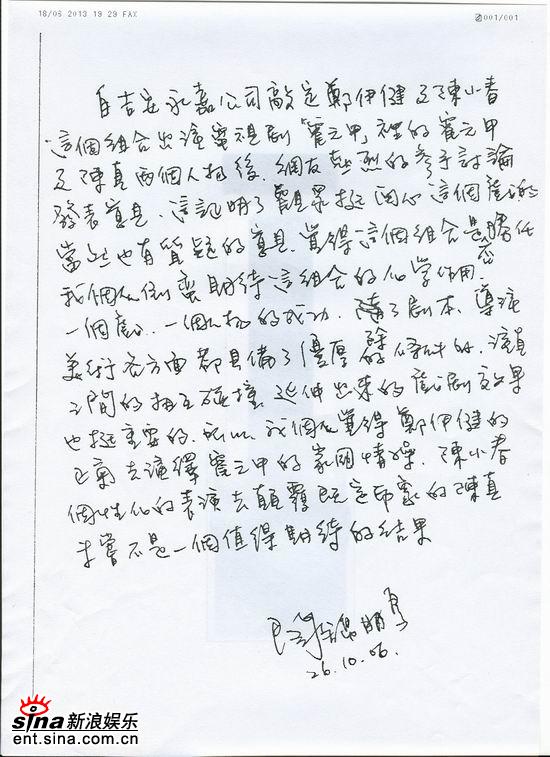 18/06 2013 19 29 FAX
001/001
自吉安永嘉公司敲定鄭伊健及陳小春
這個組合出演電視劇「霍元甲」裡的霍元甲
及陳真兩個人物後、網友熱烈的參予討論
發表意見、這説明了觀眾挺関心這個戲的
當然也有質疑的意見、覺得這個組合是否勝任
我個人倒蠻期待這組合的化学作用、
一個戲、一個人物的成功、除了劇本、導演
美術各方面都具備了優厚的條件外、演員
之間的相互碰撞、延伸出來的戲劇效果
也挺重要的、所以、我個人覺得鄭伊健的
正氣去演繹霍元甲的家国情操、陳小春
個性化的表演去顛覆既定印象的陳真
未嘗不是一個值得期待的結果
26.10.06.
sina新浪娱乐
ent.sina.com.cn